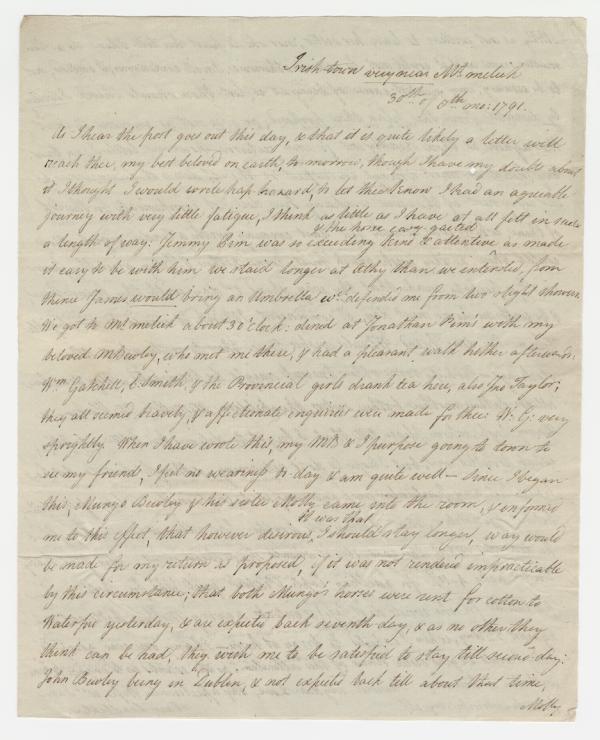 Irish-town very near Mt. melick
30th. of 8th mo: 1791.
As I hear the post goes out this day, & that it is quite likely a letter will
reach thee, my best beloved on earth, to-morrow, though I have my doubts about
it I thought I would wrote hap-hazard, to let thee know I had an agreeable
journey with very little fatigue, I think as little as I have at all felt in such
& the horse easy gaited
a length of way: Jemmy Pim was so exceeding kind & attentive as made
it easy to be with him we staid longer at Athy than we intended, from
thence James would bring an Umbrella wch. defended me from two slight showers.
We got to Mt melick about 3 o'clock: dined at Jonathan Pim's with my
beloved MBewley, who met me there, & had a pleasant walk hither afterwards.
Wm. Gatchell, E Smith, & the Provincial girls drank tea here, also Jno Taylor;
they all seemed bravely, & affectionate enquiries were made for thee: W: G: very
sprightly. When I have wrote this, my MB & I purpose going to town to
see my friend, I feel no weariness to-day & am quite well — since I began
this, Mungo Bewley & his sister Molly came into the room, & informed
it was that
me to this effect, that however desirous I should stay longer, way would
be made for my return as proposed, if it was not rendered impracticable
by this circumstance; that both Mungo's horses were sent for cotton to
Waterford yesterday, & are expected back seventh-day, & as no other they
think can be had, they wish me to be satisfied to stay till second-day;
John Bewley being in Dublin, & not expected back till about that time,
Molly